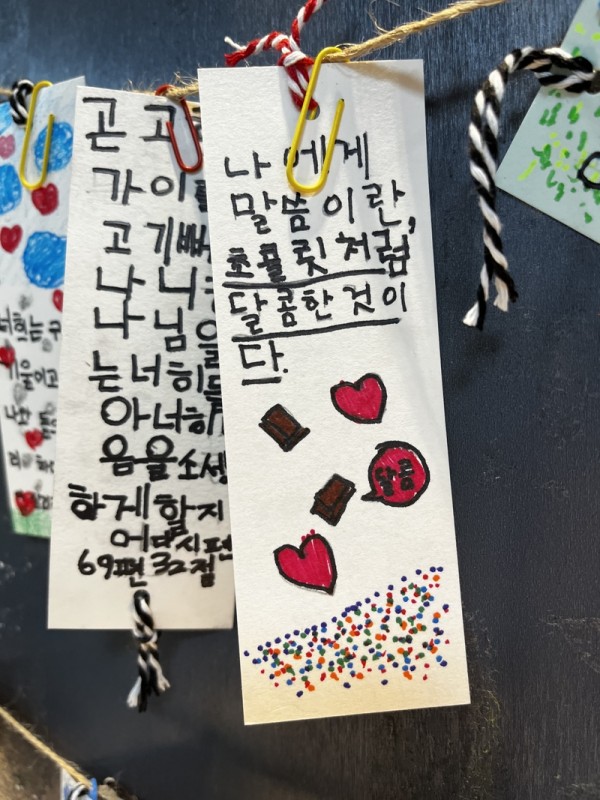 너희는 구
곤 고
가 이
고 기뻐
나 니
나 님을
는 너희들
아 너희
음을 소생
하게 할지
어다 시편
69편 32절
나에게
말씀이란,
초콜릿처럼
달콤한 것이
다.
달콤